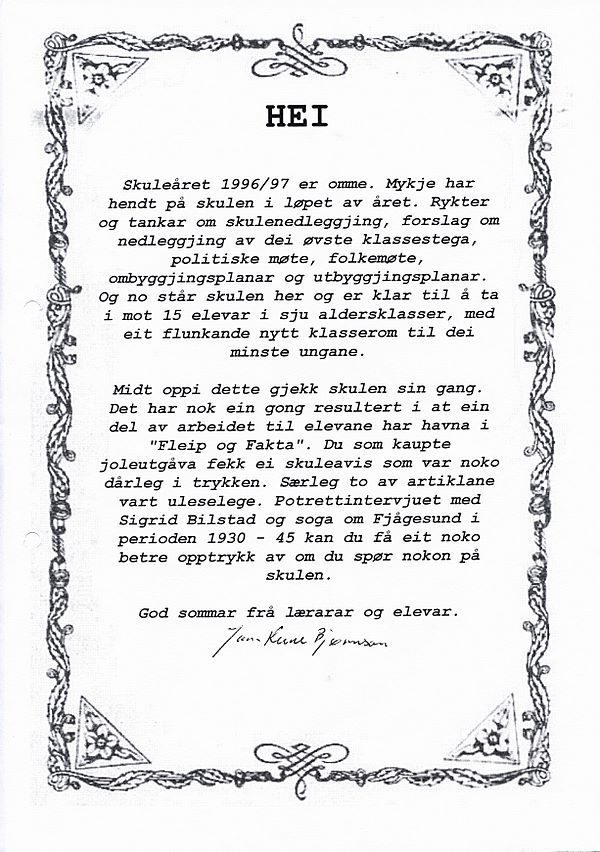 HEI
Skuleåret 1996/97 er omme. Mykje har
hendt på skulen i løpet av året. Rykter
og tankar om skulenedleggjing, forslag om
nedleggjing av dei øvste klassestega,
politiske møte, folkemøte,
ombyggjingsplanar og utbyggjingsplanar.
Og no står skulen her og er klar til å ta
i mot 15 elevar i sju aldersklasser, med
eit flunkande nytt klasserom til dei
minste ungane.
Midt oppi dette gjekk skulen sin gang.
Det har nok ein gong resultert i at ein
del av arbeidet til elevane har havna i
"Fleip og Fakta". Du som kaupte
joleutgåva fekk ei skuleavis som var noko
dårleg i trykken. Særleg to av artiklane
vart uleselege. Potrettintervjuet med
Sigrid Bilstad og soga om Fjågesund i
perioden 1930 - 45 kan du få eit noko
betre opptrykk av om du spør nokon på
skulen.
God sommar frå lærarar og elevar.